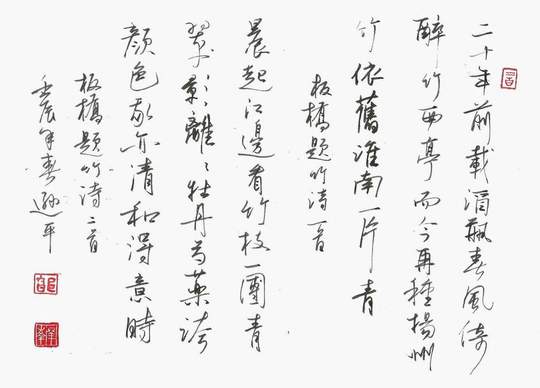 二十年前載酒瓶春風倚
醉竹西亭而今再種揚州
竹依舊淮南一片青
板橋題竹詩一首
晨起江邊看竹枝一團青
翠影離々牡丹芍藥誇
顏色我亦清和得意時
板橋題竹詩二首
壬辰年春遜平